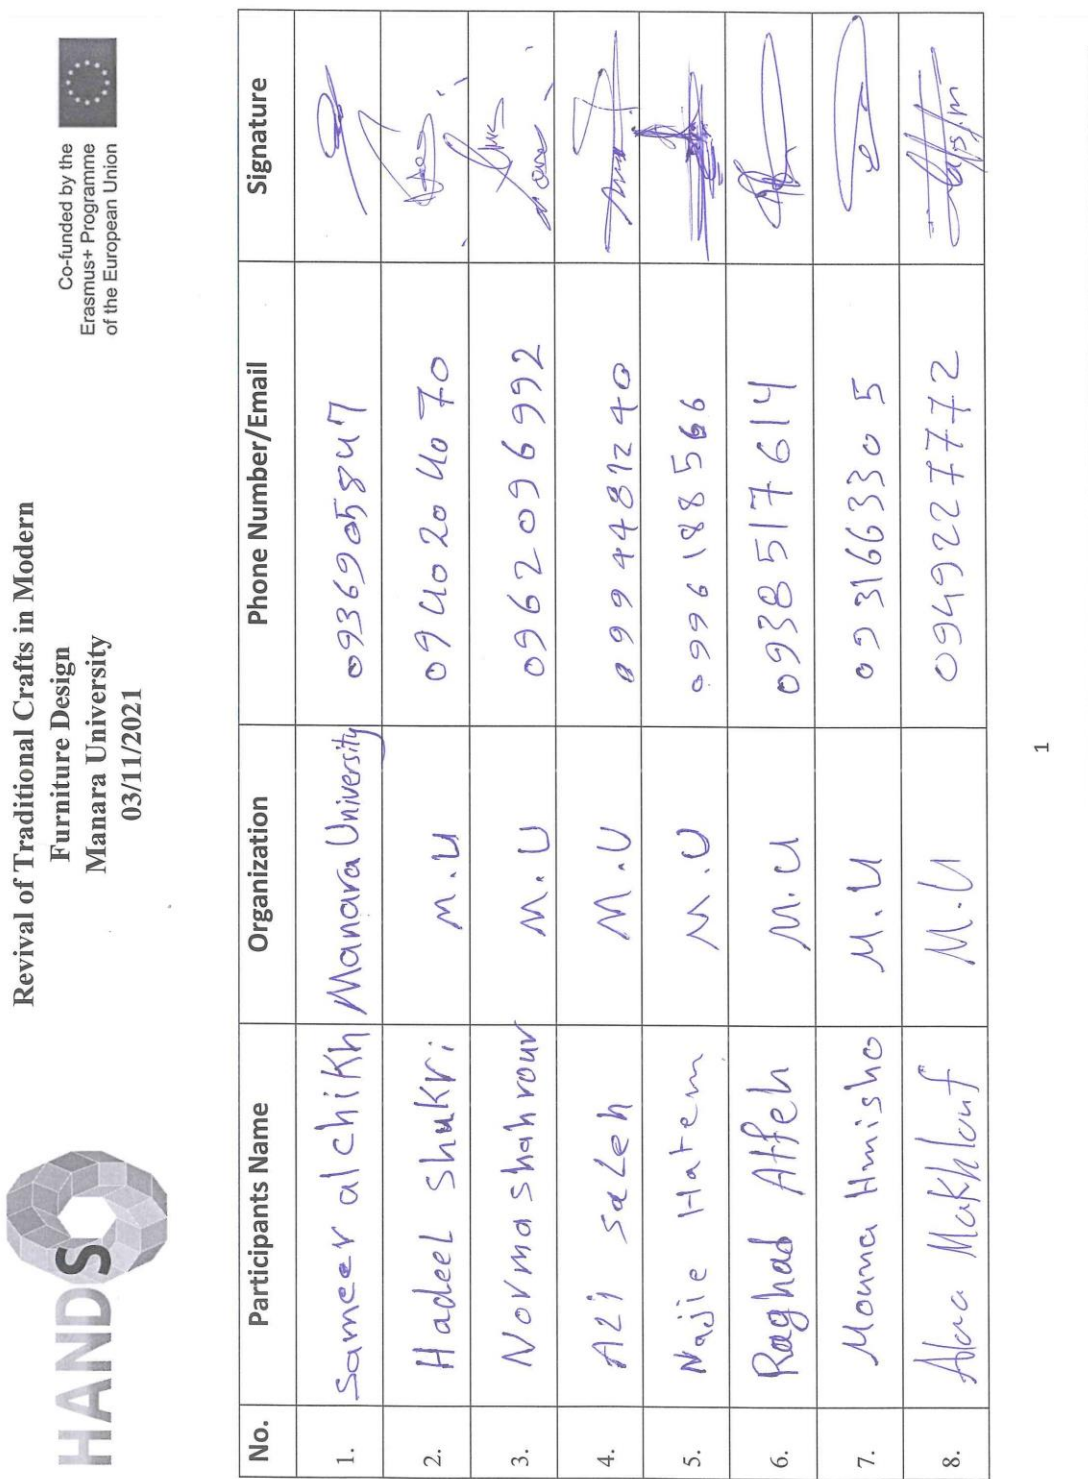 HANDS
Revival of Traditional Crafts in Modern
Furniture Design
Manara University
03/11/2021
Co-funded by the
Erasmus+ Programme
of the European Union
No. Participants Name Organization Phone Number/Email Signature
1. Sameer alchikh Manara University 0936905847
2. Hadeel Shukri M.U 0940204070
3. Norma shahrour M.U 0962096992
4. Ali saleh M.U 0994481240
5. Najie Hatem M.U 0996188566
6. Raghad Affeh M.U 0938517614
7. Mouna Hmisho M.U 0931663305
8. Alaa Makhlouf M.U 0949227772
1